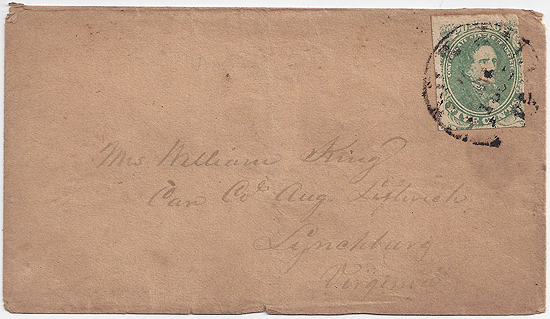 Mrs William King
Care Col Aug. Leftwich
Lynchburg
Virginia